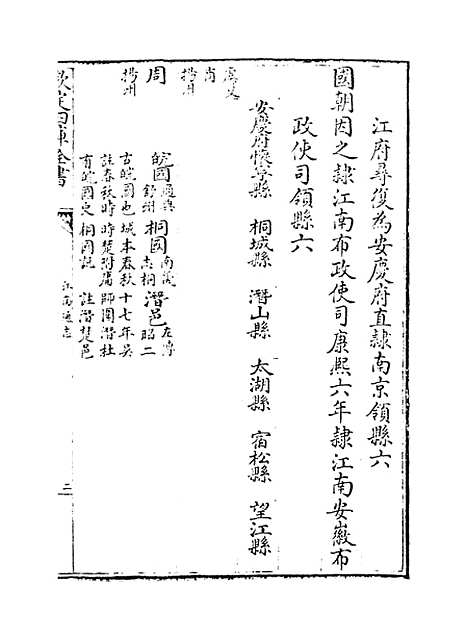 江府尋復為安慶府直隸南京領縣六
國朝因之隸江南布政使司康熙六年隸江南安徽布
政使司領縣六
安慶府懷寧縣 桐城縣 潛山縣 太湖縣 宿松縣 望江縣
虞夏
商
揚州
周
揚州
皖國 通典舒州 桐國 南畿志桐 潛邑 左傳昭二
古皖國也 城本春秋 十七年吳
註春秋時 時楚附庸 師圍潛杜
有皖國史 桐國記 註潛楚邑
欽定四庫全書
江南通志
三